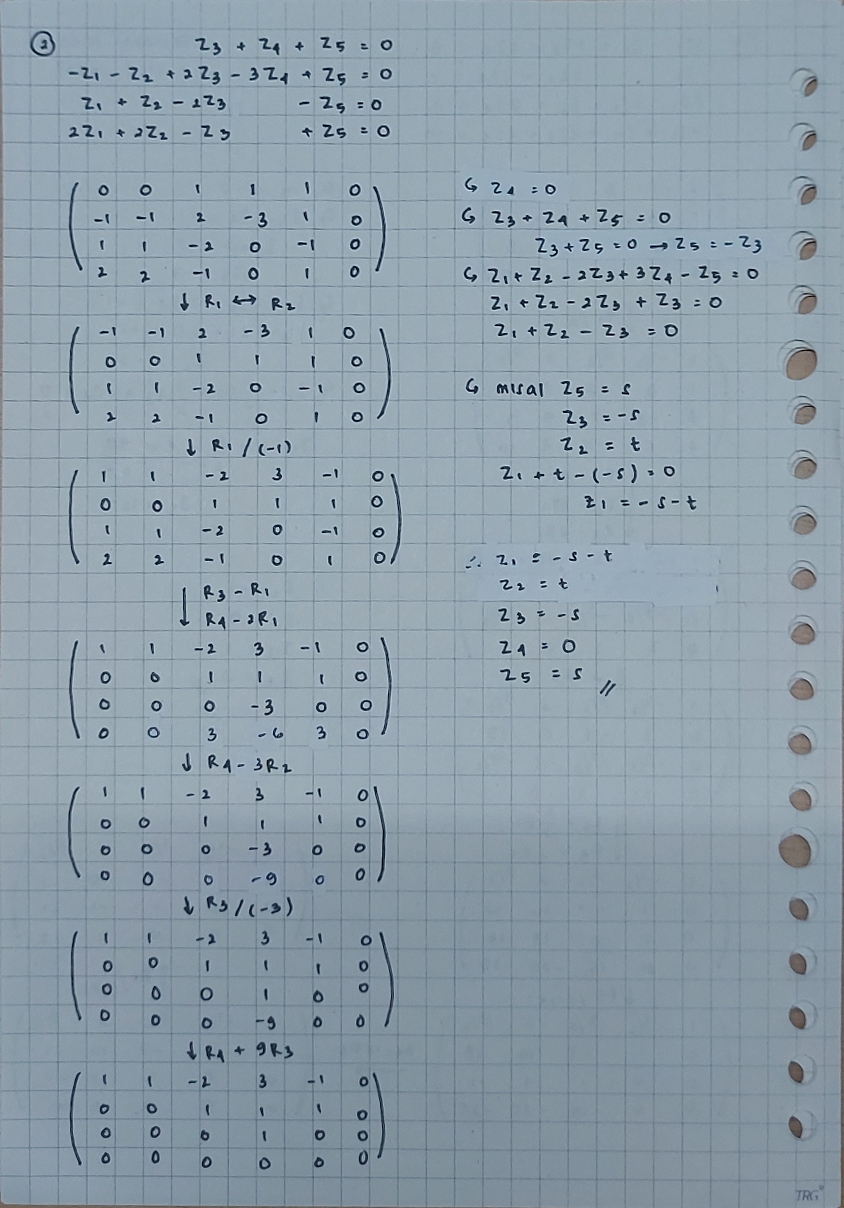 2
Z3 + Z4 + Z5 = 0
-Z1 - Z2 + 2Z3 - 3Z4 + Z5 = 0
Z1 + Z2 - 2Z3 - Z5 = 0
2Z1 + 2Z2 - Z3 + Z5 = 0
0 0 1 1 1 0
-1 -1 2 -3 1 0
1 1 -2 0 -1 0
2 2 -1 0 1 0
↓ R1 ↔ R2
-1 -1 2 -3 1 0
0 0 1 1 1 0
1 1 -2 0 -1 0
2 2 -1 0 1 0
↓ R1 / (-1)
1 1 -2 3 -1 0
0 0 1 1 1 0
1 1 -2 0 -1 0
2 2 -1 0 1 0
↓ R3 - R1
R4 - 2R1
1 1 -2 3 -1 0
0 0 1 1 1 0
0 0 0 -3 0 0
0 0 3 -6 3 0
↓ R4 - 3R2
1 1 -2 3 -1 0
0 0 1 1 1 0
0 0 0 -3 0 0
0 0 0 -9 0 0
↓ R3 / (-3)
1 1 -2 3 -1 0
0 0 1 1 1 0
0 0 0 1 0 0
0 0 0 -9 0 0
↓ R4 + 9R3
1 1 -2 3 -1 0
0 0 1 1 1 0
0 0 0 1 0 0
0 0 0 0 0 0
↳ Z4 = 0
↳ Z3 + Z4 + Z5 = 0
Z3 + Z5 = 0 → Z5 = -Z3
↳ Z1 + Z2 - 2Z3 + 3Z4 - Z5 = 0
Z1 + Z2 - 2Z3 + Z3 = 0
Z1 + Z2 - Z3 = 0
↳ misal Z5 = s
Z3 = -s
Z2 = t
Z1 + t - (-s) = 0
Z1 = -s - t
∴ Z1 = -s - t
Z2 = t
Z3 = -s
Z4 = 0
Z5 = s //
TRG